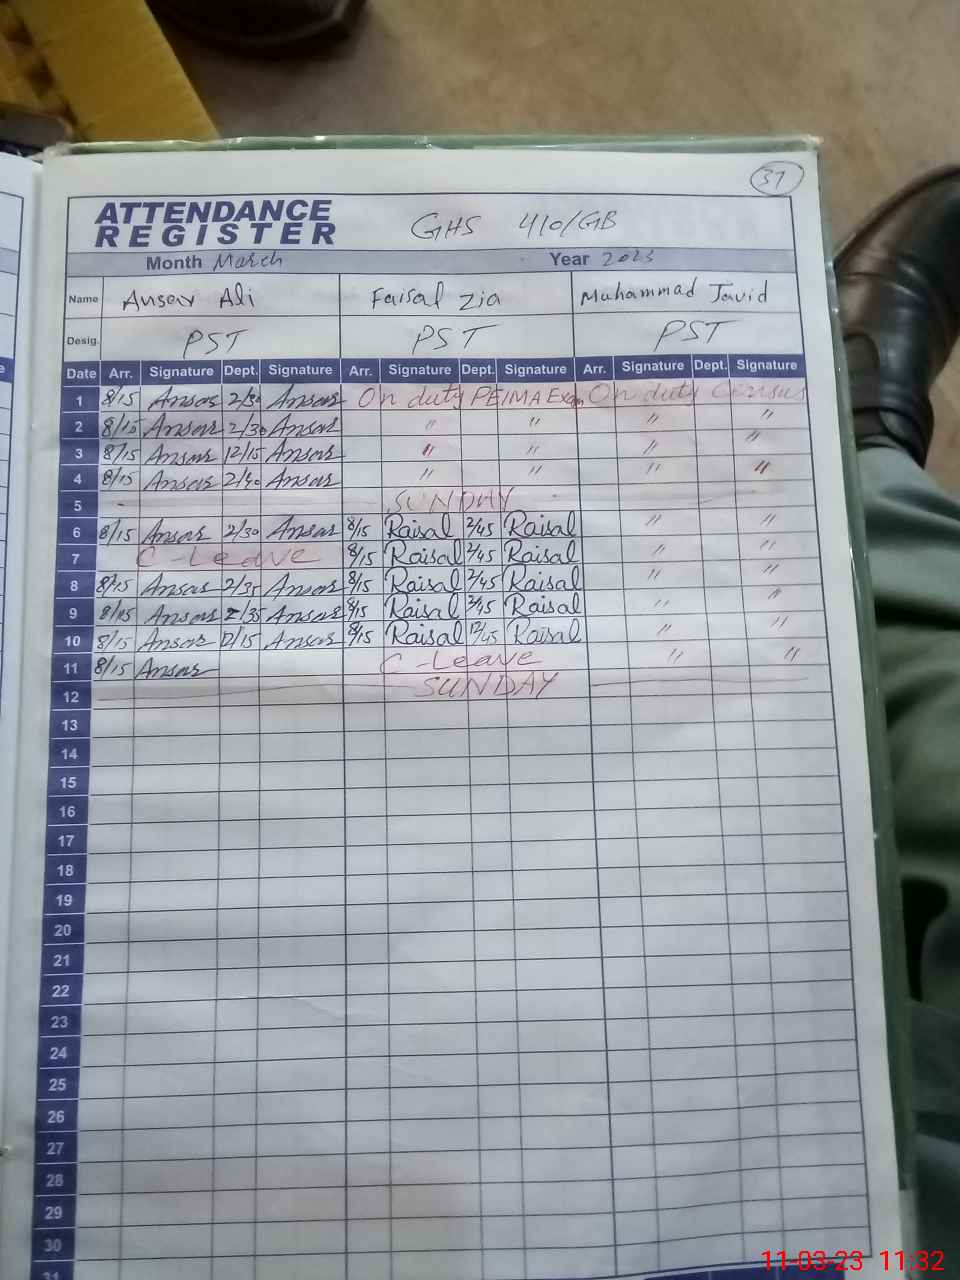 37
ATTENDANCE
REGISTER
GHS 410/GB
Month March Year 2023
Name Ansar Ali Faisal Zia Muhammad Javid
Desig. PST PST PST
Date Arr. Signature Dept. Signature Arr. Signature Dept. Signature Arr. Signature Dept. Signature
1 8/15 Ansar 2/30 Ansar On duty PEIMA Exam On duty Census
2 8/15 Ansar 2/30 Ansar " " " "
3 8/15 Ansar 12/15 Ansar " " " "
4 8/15 Ansar Ansar " " " "
5 SUNDAY
6 8/15 Ansar 2/30 Ansar 8/15 Raisal 2/45 Raisal " "
7 C-Leave 8/15 Raisal 2/45 Raisal " "
8 8/15 Ansar 2/35 Ansar 8/15 Raisal 2/45 Raisal " "
9 8/15 Ansar 2/35 Ansar 8/15 Raisal 2/45 Raisal " "
10 8/15 Ansar 12/15 Ansar 8/15 Raisal 12/45 Raisal " "
11 8/15 Ansar C-Leave " "
12 SUNDAY
13
14
15
16
17
18
19
20
21
22
23
24
25
26
27
28
29
30
31
11-03-23 11:32